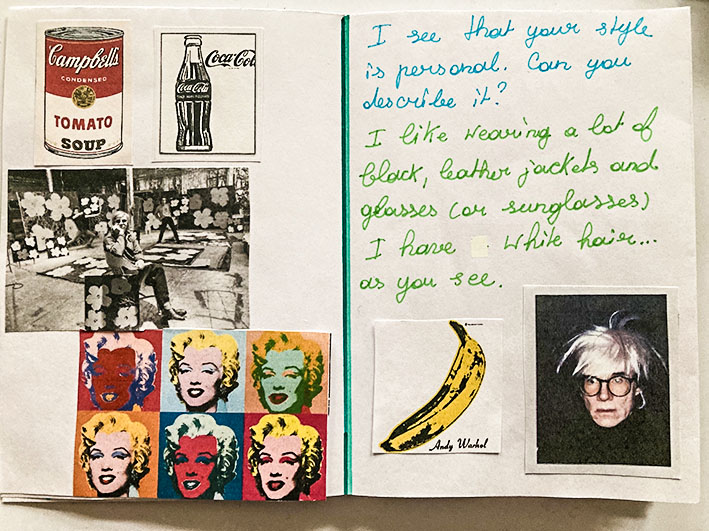 Campbell's
CONDENSED
TOMATO
SOUP
Coca-Col
Coca-Cola
I see that your style
is personal. Can you
describe it?
I like wearing a lot of
black, leather jackets and
glasses (or sunglasses)
I have white hair...
as you see.
Andy Warhol